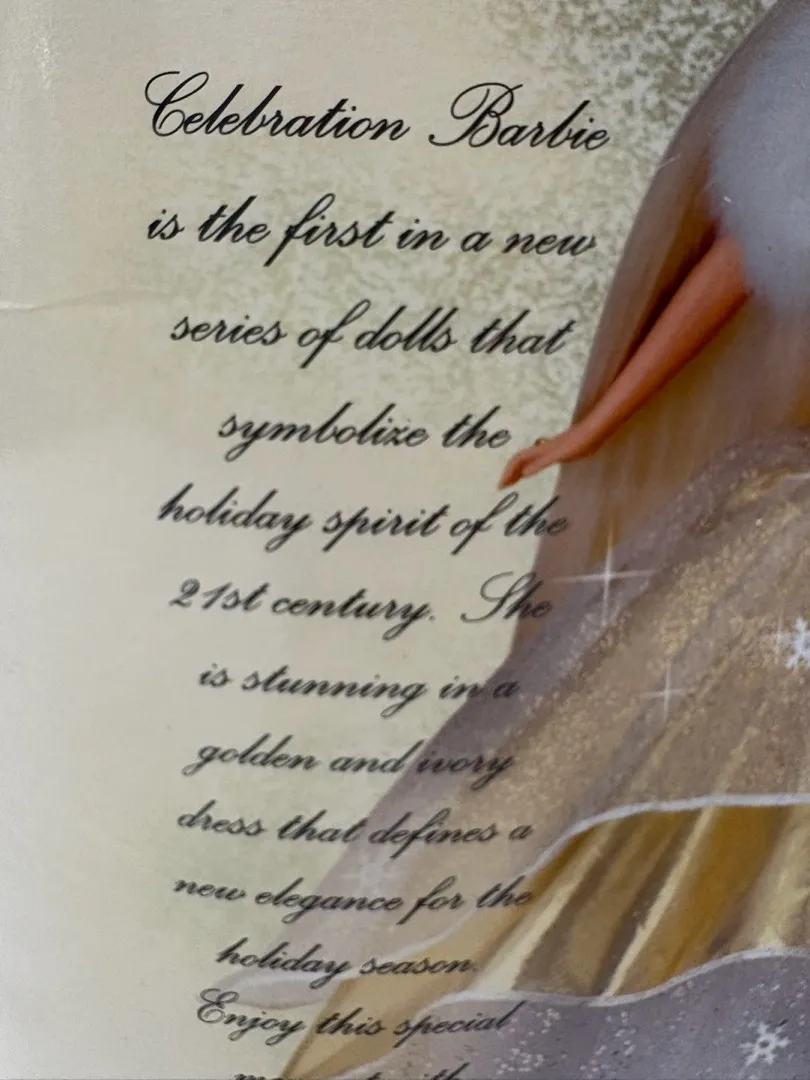 Celebration Barbie
is the first in a new
series of dolls that
symbolize the
holiday spirit of the
21st century. She
is stunning in a
golden and ivory
dress that defines a
new elegance for the
holiday season.
Enjoy this special